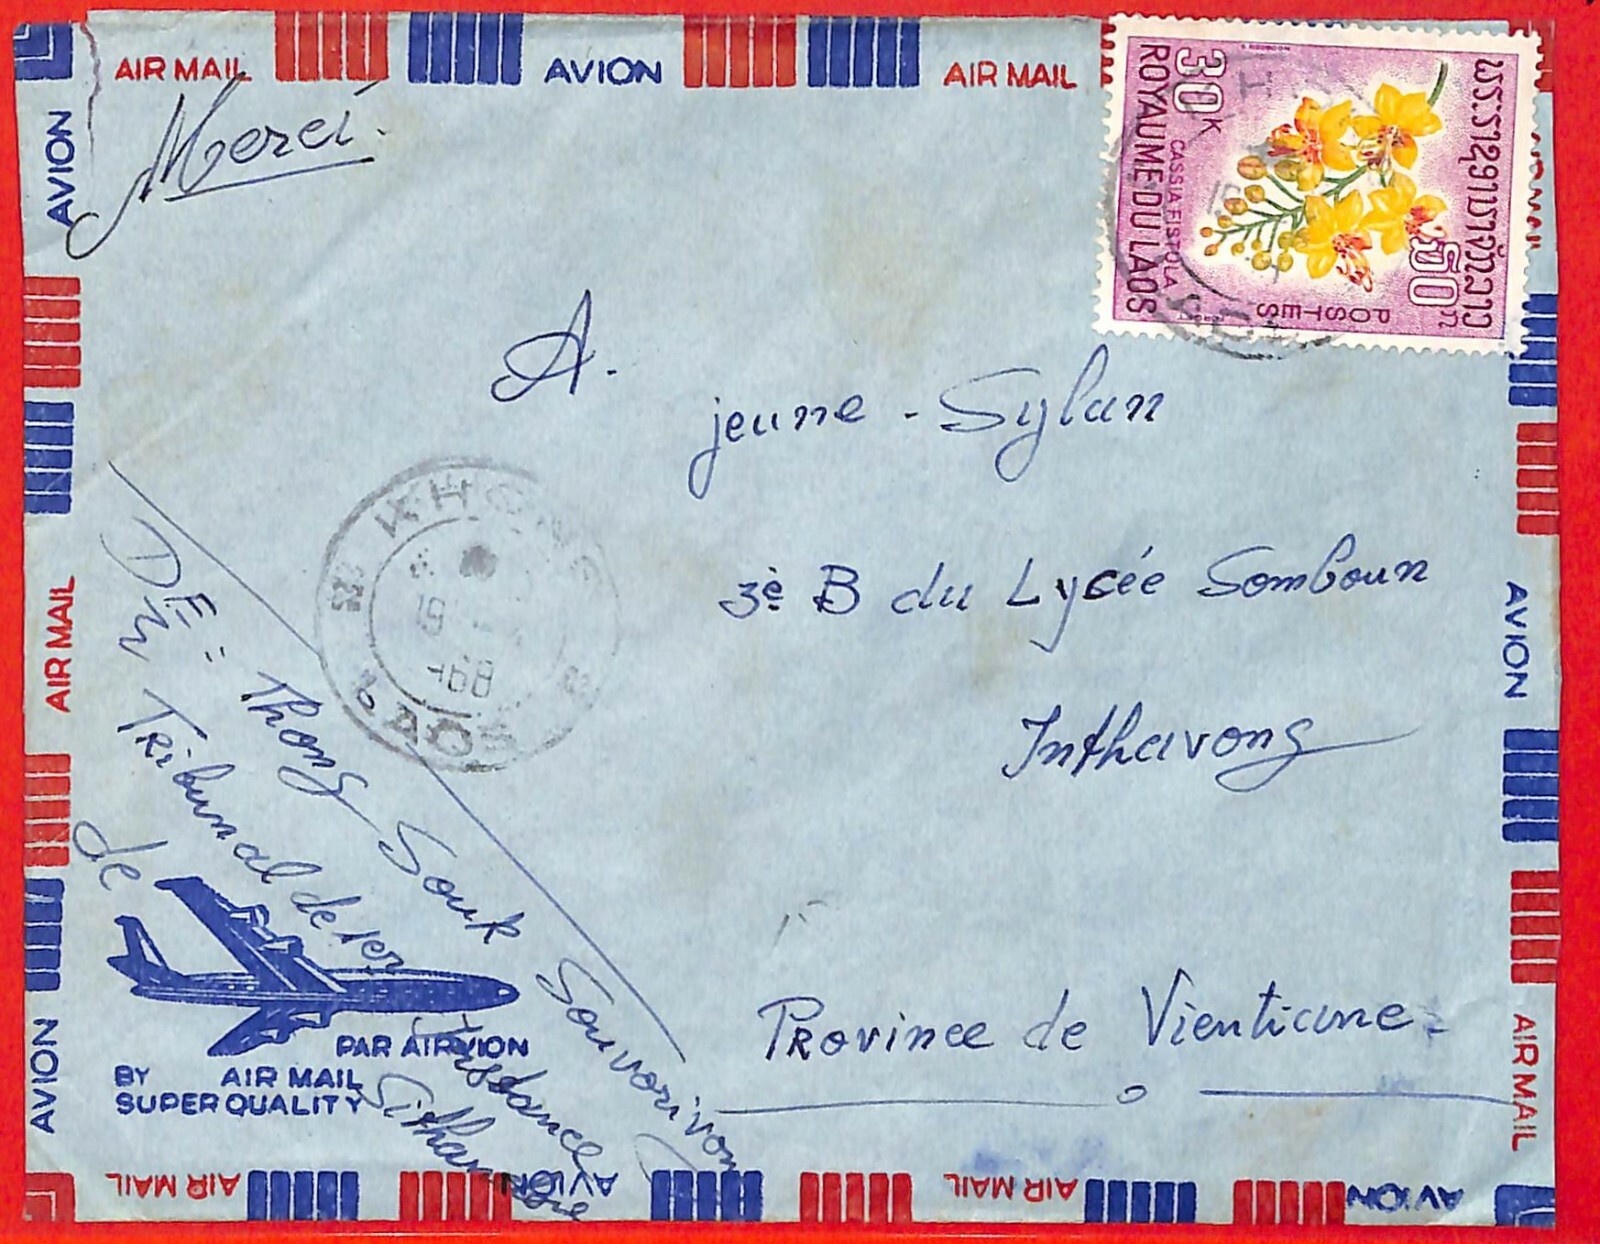 AIR MAIL AVION AIR MAIL
Merci.
30K
ROYAUME DU LAOS
CASSIA FISTOLA
POSTES
50
A.
jeune - Sylan
3è B du Lycée Somboun
Inthavong
Province de Vientiane
KHONG
19
-68
LAOS
DE : Thong Souk Souvorivong
Tribunal de 1er
de
PAR AIR VION
BY AIR MAIL
SUPER QUALITY
AVION
AIR MAIL
AVION
AVION
AIR MAIL
AIR MAIL AVION AIR MAIL AVION